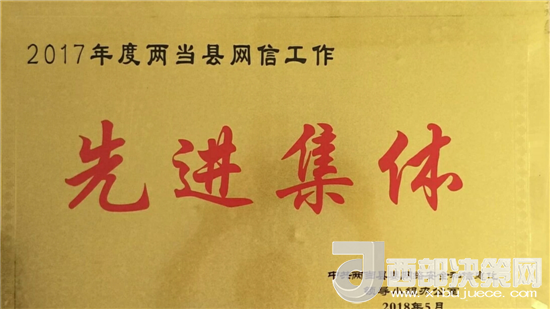 2017年度两当县网信工作
先进集体
中共两当县
领导小组办公室
2018年5月
西部决策网
www.xibujuece.com